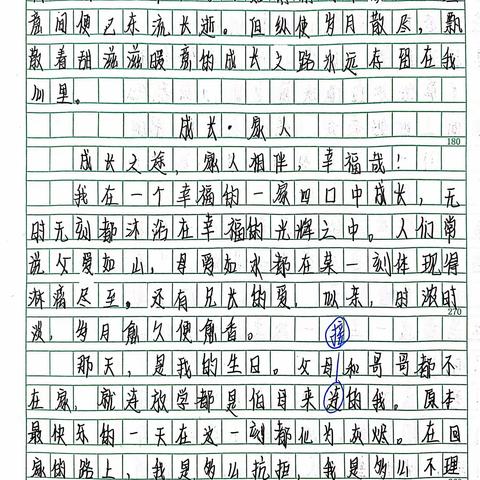 意间便已东流长逝。但纵使岁月散尽，飘
散着甜滋滋暖意的成长之路永远存留在我
心里。
成长·家人
180
成长之途，家人相伴，幸福哉！
我在一个幸福的一家四口中成长，无
时无刻都沐浴在幸福的光辉之中。人们常
说父爱如山，母爱如水都在某一刻体现得
淋漓尽至。还有兄长的爱，似亲，时浓时
270
淡，岁月愈久便愈香。
接
那天，是我的生日。父母和哥哥都不
在家，就连放学都是伯母来送的我。原本
最快乐的一天在这一刻都化为灰烬。在回
家的路上，我是多么抗拒，我是多么不理